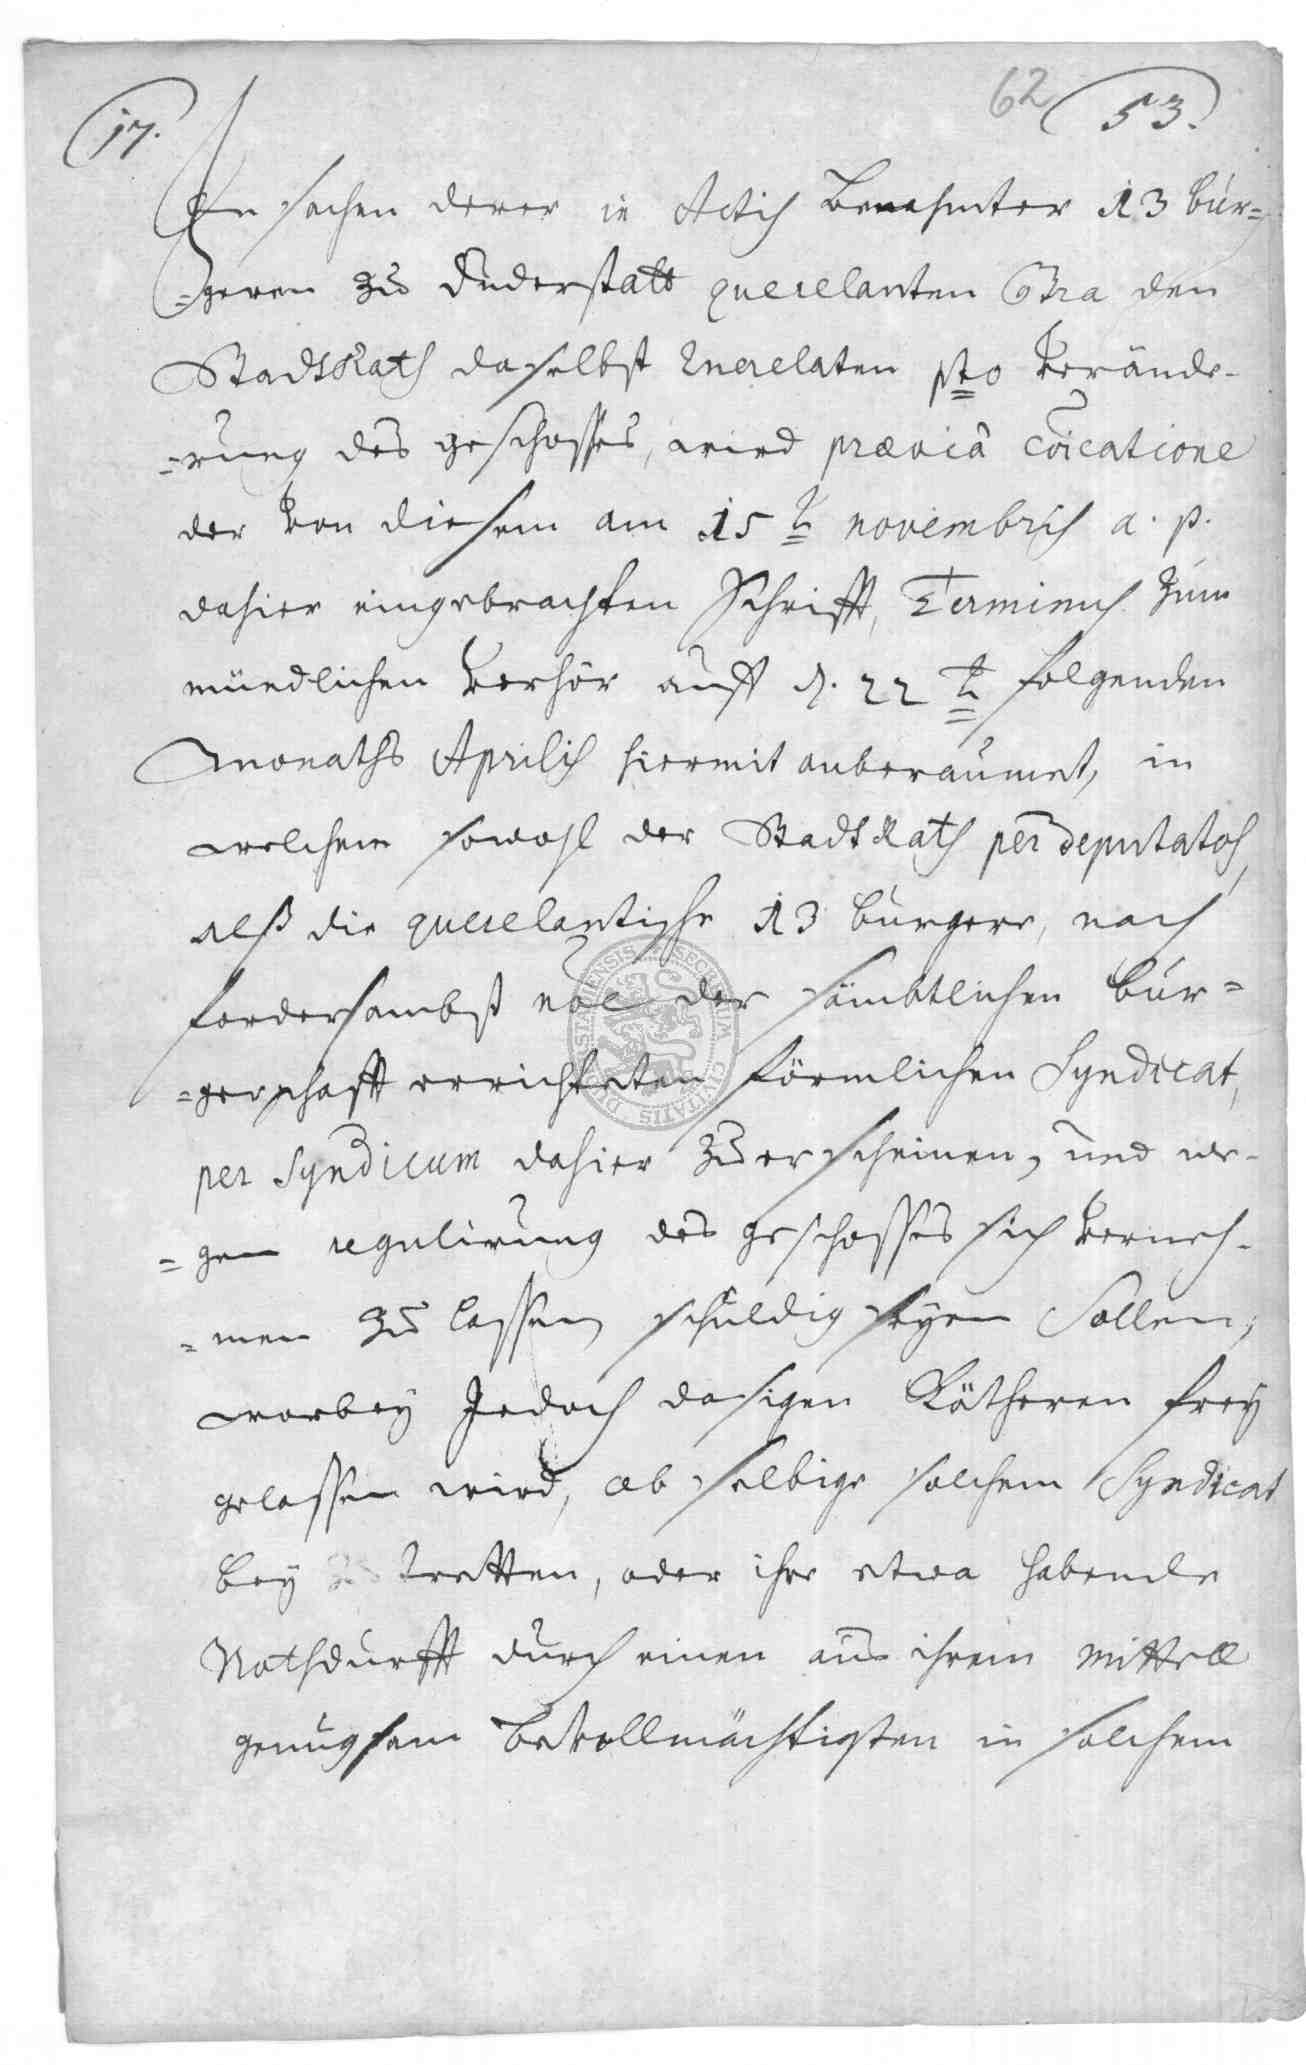 17.
62
53.
In sachen derer in Actis benahmter 13 bür=
=geren zu Duderstatt querelanten Ctra den
StadtRath daselbst Querelaten pto Verände-
=rung des geschosses, wird præviâ cõicatione
der von diesem am 15t novembris a. p.
dahier eingebrachten Schrifft, Terminus zum
mündlichen Verhör auff d. 22t folgenden
Monaths Aprilis hiermit anberaumet, in
welchem sowohl der StadtRath per deputatos,
alß die querelantische 13 bürgere, nach
fordersambst nõe der sämbtlichen bür=
=gerschafft errichteten förmlichen Syndicat,
per Syndicum dahier zu erscheinen, und we-
=gen regulirung des geschosses sich verneh-
=men zu lassen schuldig seyen Sollen,
worbey Jedoch dasigen Rätheren frey
gelassen wird, ob selbige solchem Syndicat
bey zu tretten, oder ihre etwa habende
Nothdurfft durch einen aus ihrem mittell
genugsam bevollmächtigten in solchem
SECRETUM CIVITATIS